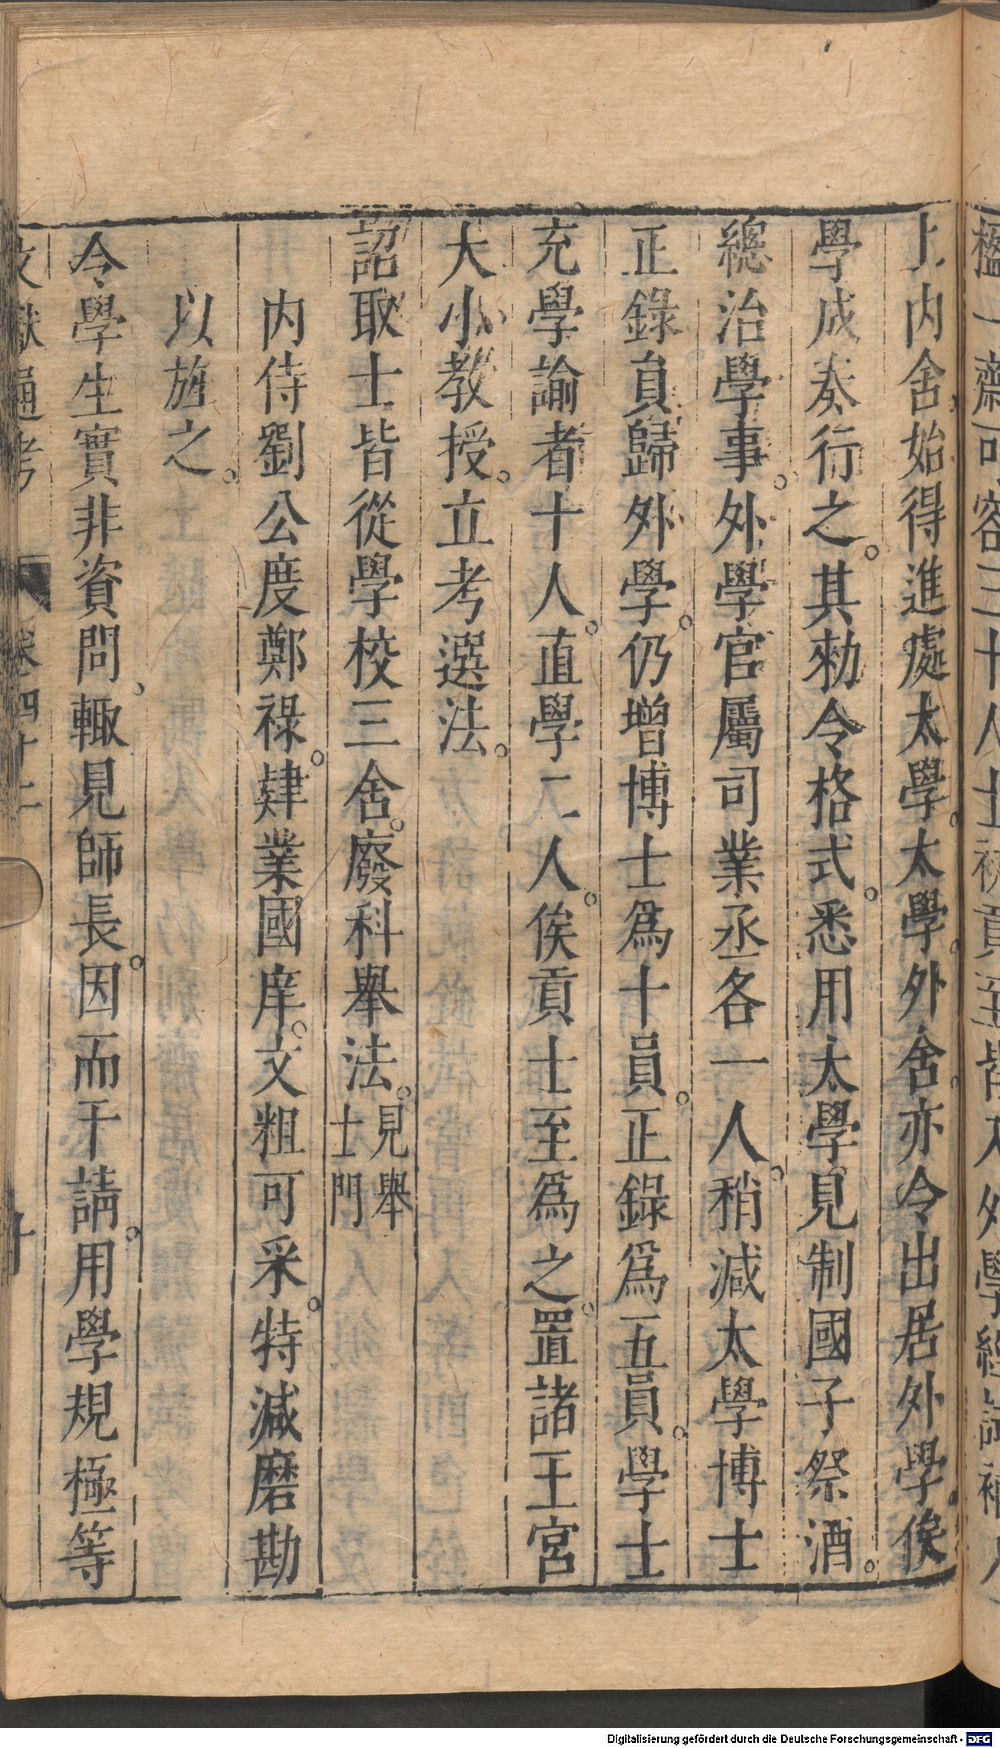 上內舍始得進處太學太學外舍亦令出居外學俟
學成奏行之。其勑令格式。悉用太學見制國子祭酒。
總治學事。外學官屬司業丞各一人。稍減太學博士
正錄員歸外學。仍增博士爲十員。正錄爲五員。學士
充學諭者十人。直學二人。俟貢士至爲之。置諸王宮
大小教授。立考選法。
詔取士皆從學校三舍。廢科舉法。見舉士門
內侍劉公度鄭祿。肄業國庠。文粗可采。特減磨勘
以旌之。
令學生實非資問、輙見師長。因而干請。用學規極等
文獻通考 卷四十二
Digitalisierung gefördert durch die Deutsche Forschungsgemeinschaft - DFG